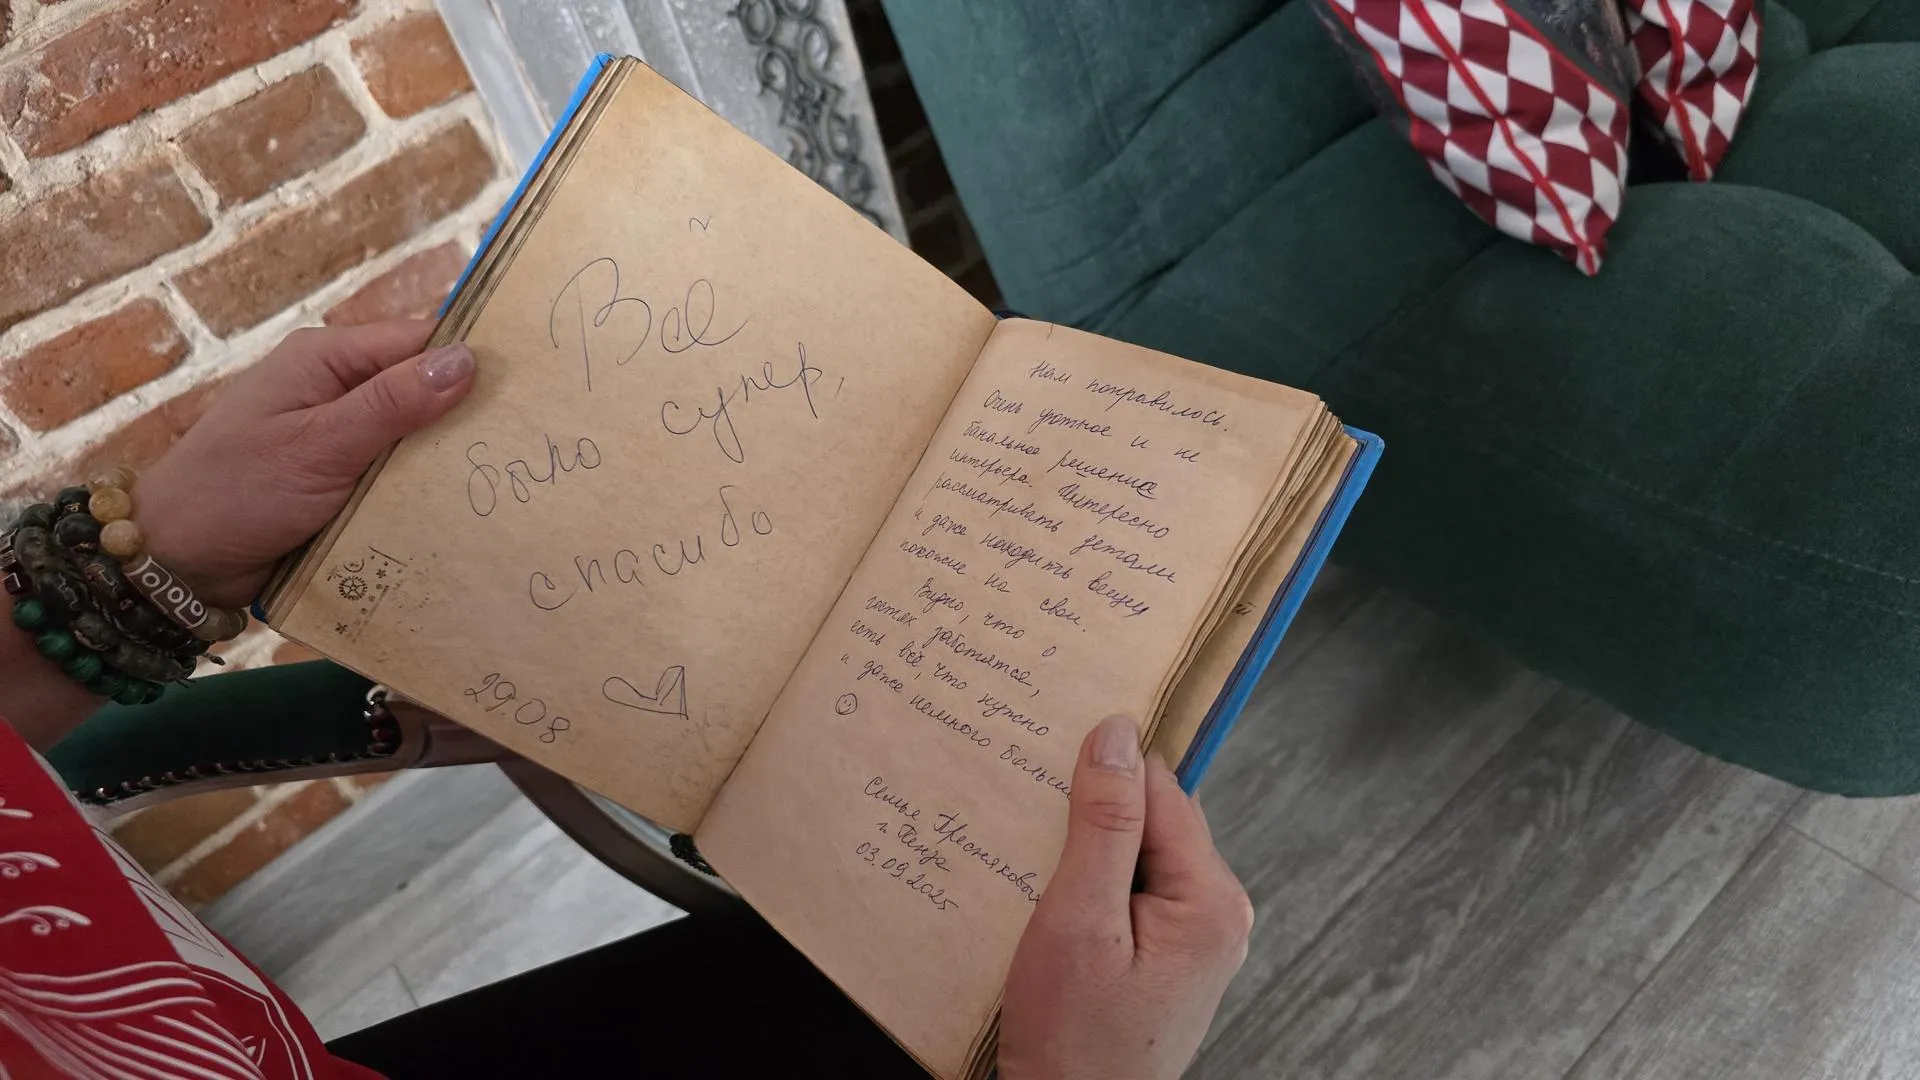 Всё
было супер,
спасибо
29.08
Нам понравилось.
Очень уютное и не
банальное решение
интерьера. Интересно
рассматривать детали
и даже находить вещи
похожие на свои.
Видно, что о
гостях заботятся,
есть всё, что нужно
и даже немного больше
Семья Пресняковых
г. Пенза
03.09.2025
й